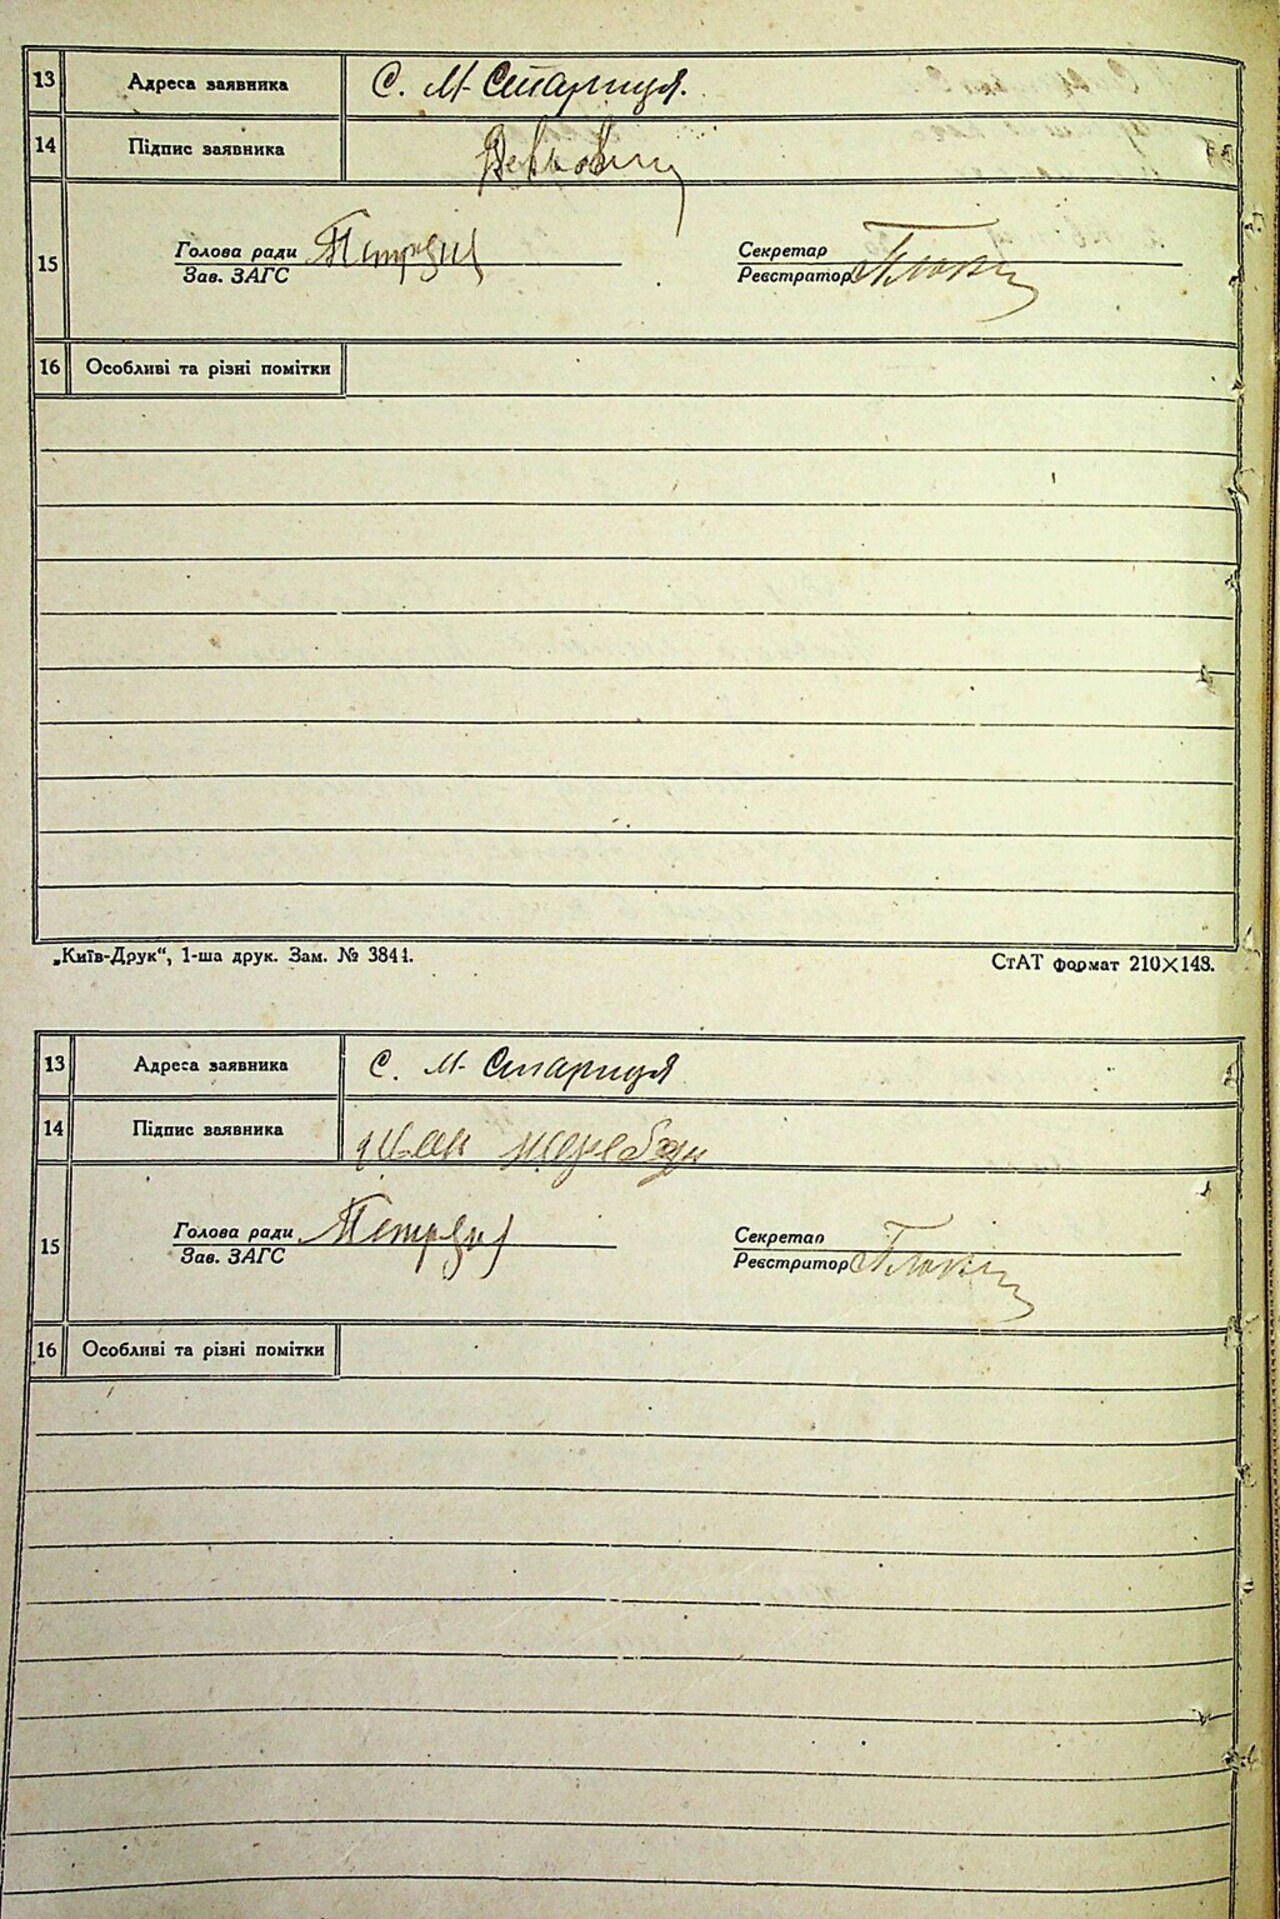 13 Адреса заявника С. М-Стариця.
14 Підпис заявника
15 Голова ради Секретар
Зав. ЗАГС Реєстратор
16 Особливі та різні помітки
„Київ-Друк“, 1-ша друк. Зам. № 3844. СтАТ формат 210×148.
13 Адреса заявника С. М-Стариця
14 Підпис заявника
15 Голова ради Секретар
Зав. ЗАГС Реєстритор
16 Особливі та різні помітки